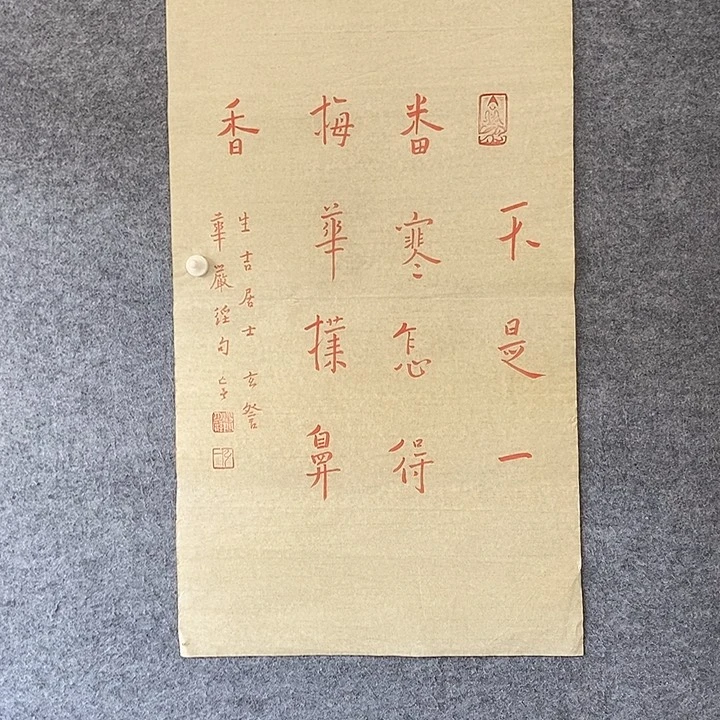 不是一
番寒怎得
梅華撲鼻
香
生吉居士 玄詧
華嚴經句 亡言